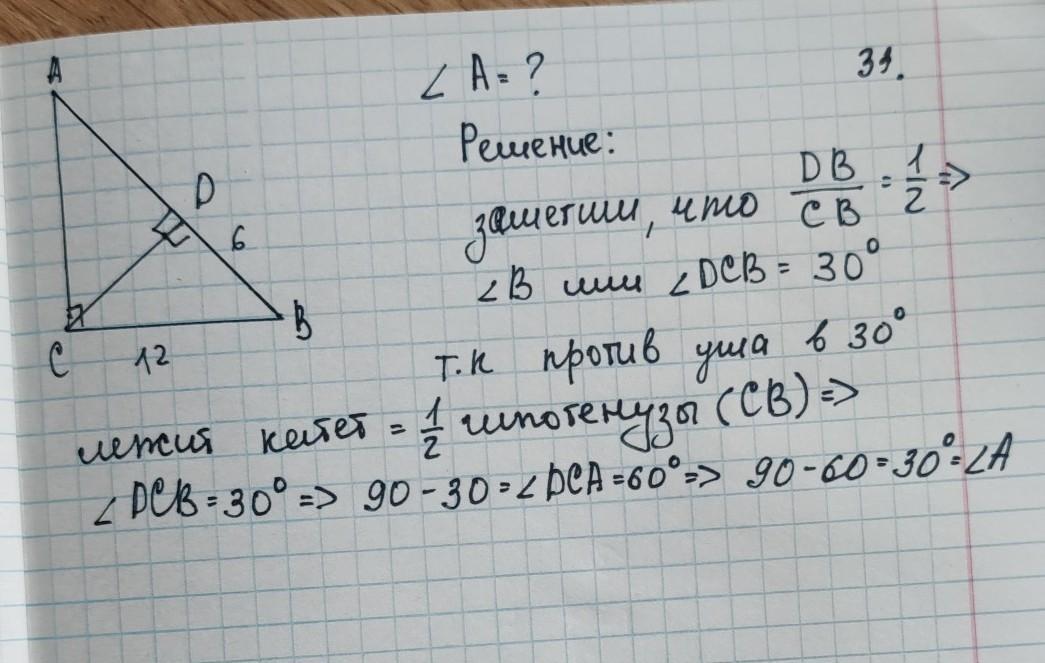 A
∠ A = ? 31.
Решение:
D
заметим, что DB/CB = 1/2 =>
6
∠B или ∠DCB = 30°
B
C 12
т.к против угла в 30°
лежит катет = 1/2 гипотенузы (CB) =>
∠DCB = 30° => 90 - 30 = ∠DCA = 60° => 90 - 60 = 30° = ∠A